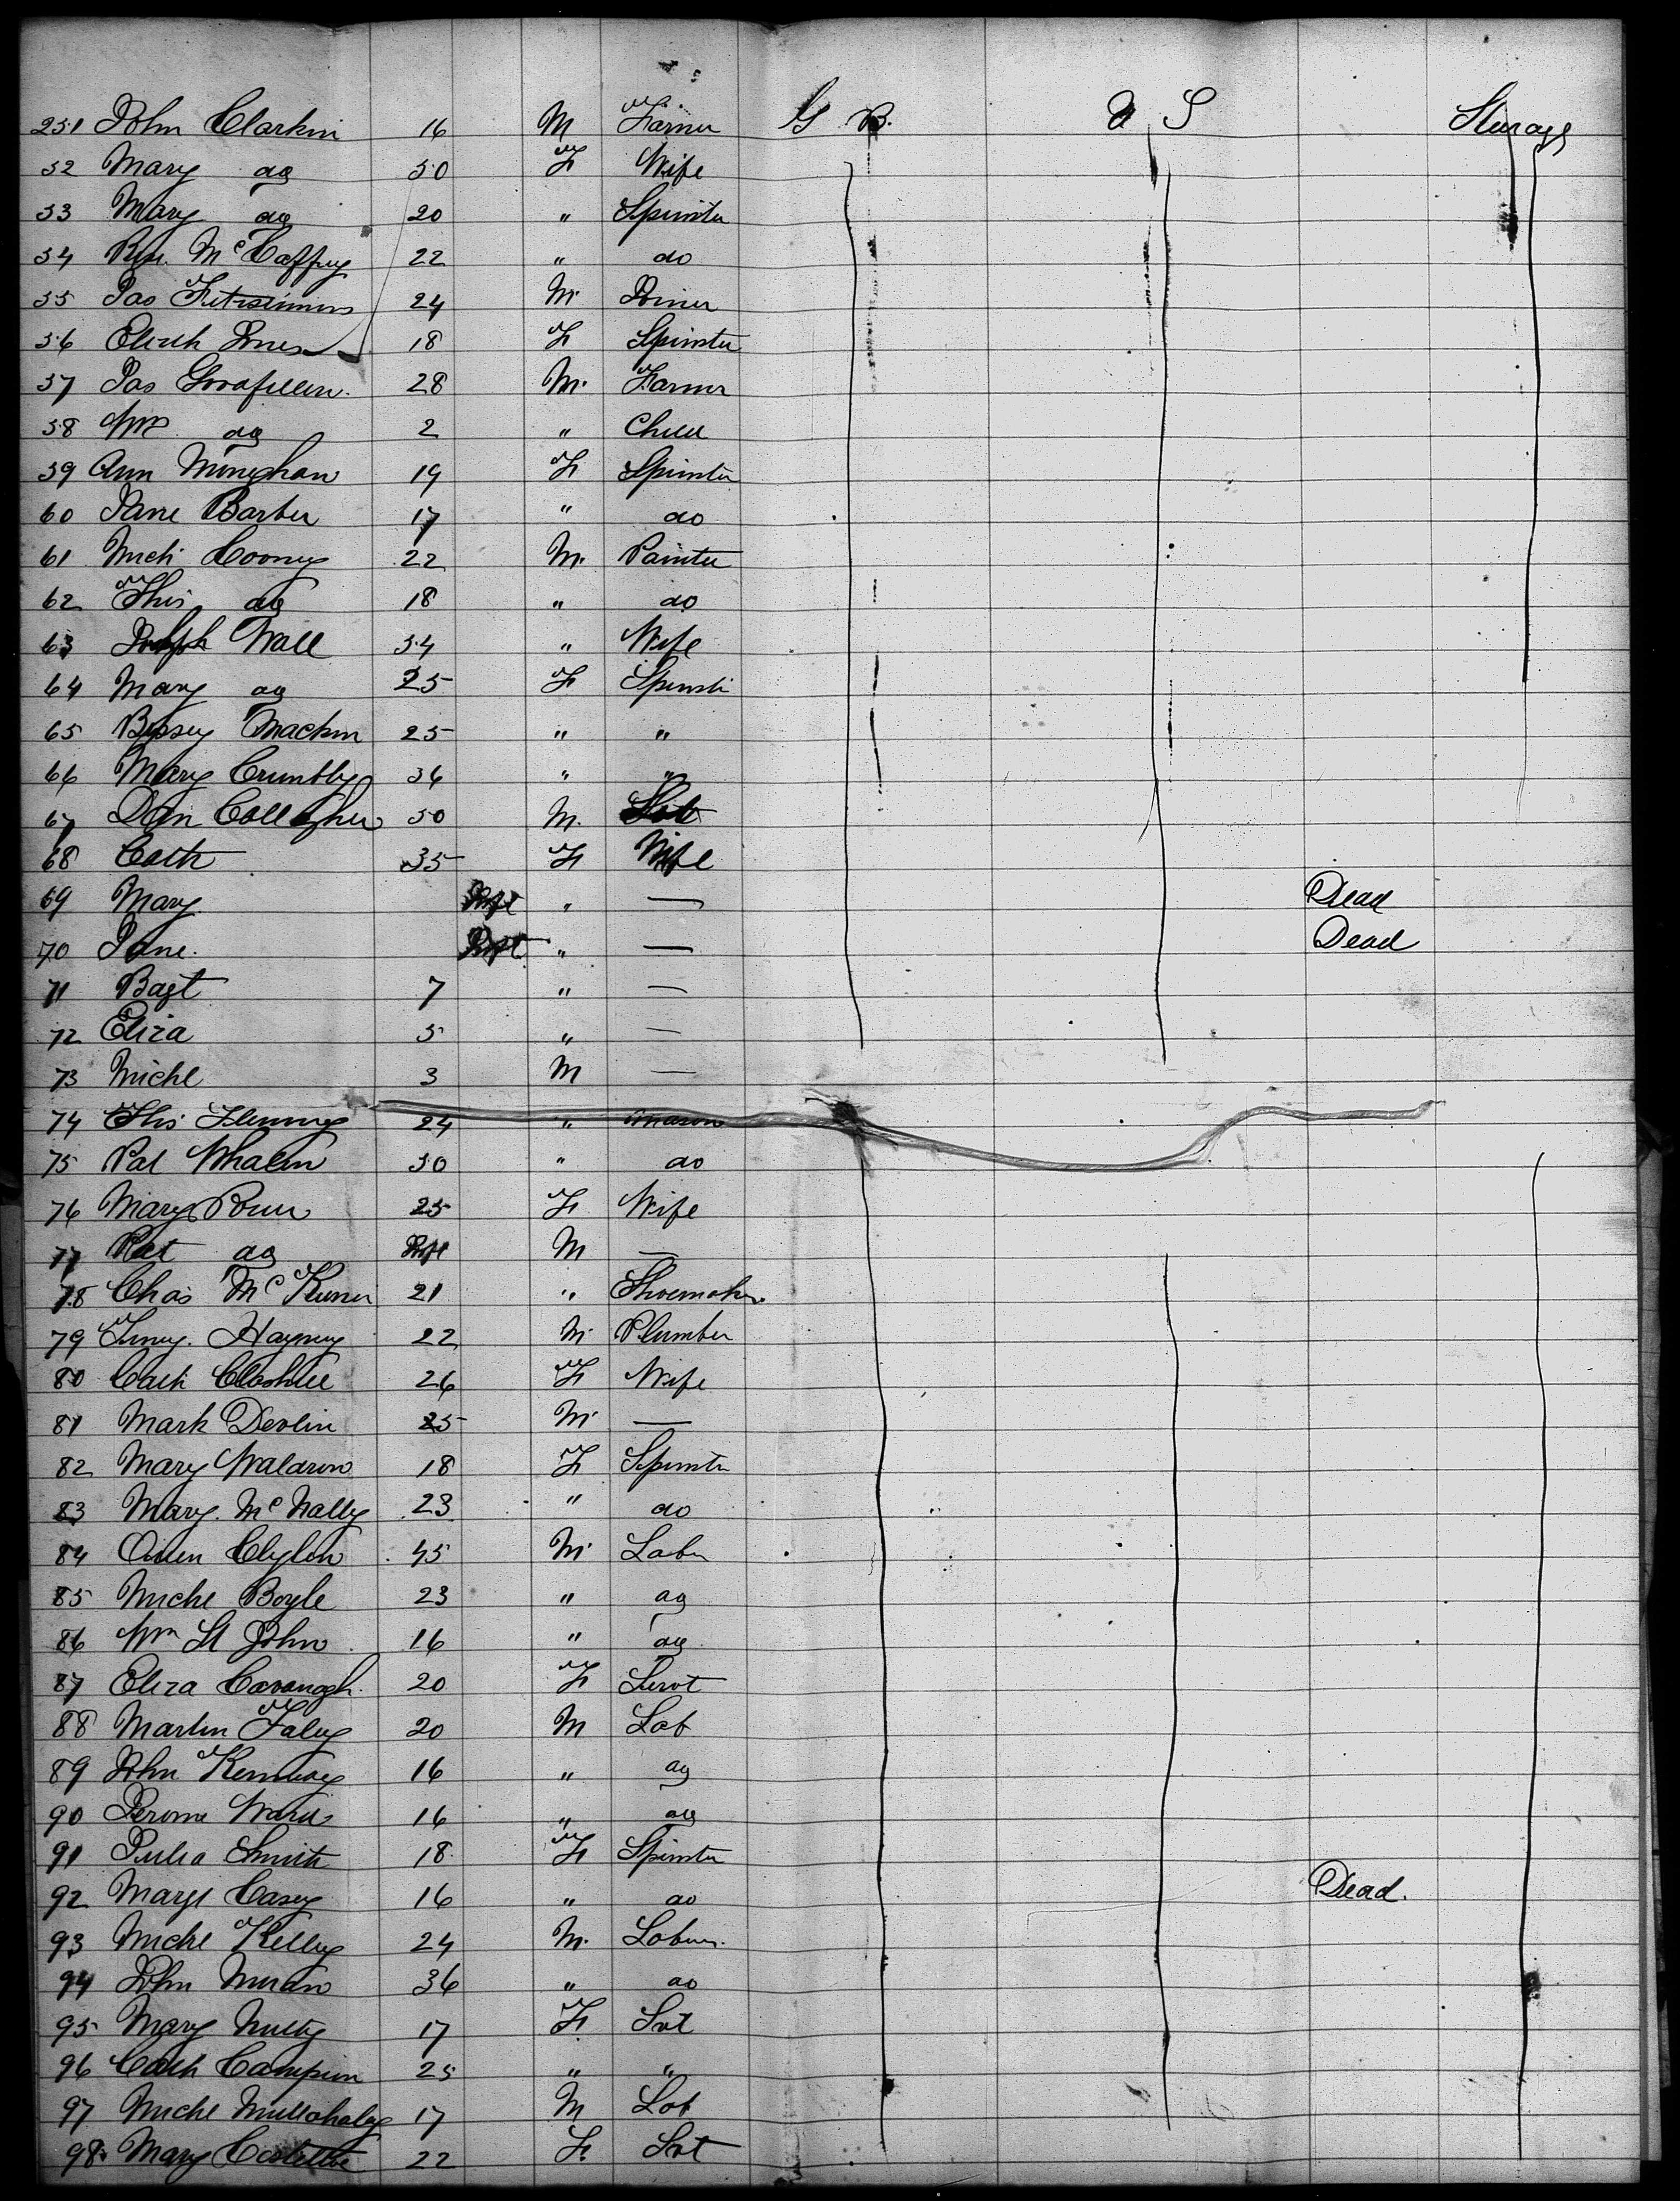 251 John Clarkin 16 M Farmer G B. U S Steerage
52 Mary do 50 F Wife
53 Mary do 20 " Spinster
54 McCaffrey 22 " do
55 Jas Fitzsimmons 24 M. Joiner
56 Elizth Jones 18 F Spinster
57 Jas 28 M. Farmer
58 Wm do 2 " Child
59 Ann Monighan 19 F Spinster
60 Jane Barber 17 " do
61 Mich Cooney 22 M. Painter
62 Thos do 18 " do
63 Joseph Wall 54 " Wife
64 Mary do 25 F Spinst
65 Bessy Mackin 25 " "
66 Mary Crumbly 36 " "
67 Dan Collagher 50 M.
68 Cath 35 F Wife
69 Mary Inft " — Dead
70 Jane. Inft " — Dead
71 Bagt 7 " —
72 Eliza 5 " —
73 Michl 3 M —
74 Thos Fleming 24 " Mason
75 Pat Whalen 50 " do
76 Mary 25 F Wife
77 Pat do Inft M —
78 Chas Mc 21 " Shoemaker
79 22 M Plumber
80 Cath 26 F Wife
81 Mark Devlin 25 M —
82 Mary Waldron 18 F Spinster
83 Mary. McNally 23 " do
84 Owen 45 M Labr
85 Michl Boyle 23 " do
86 Wm St John 16 " do
87 Eliza Cavanagh. 20 F Servt
88 Martin Faley 20 M Lab
89 John Kennedy 16 " do
90 Jerome Ward 16 " do
91 Julia Smith 18 F Spinster
92 Margt Casey 16 " do Dead.
93 Michl Kelley 24 M. Labour.
94 John Moran 36 " do
95 Mary Nulty 17 F Svt
96 Cath Campion 25 " "
97 Michl Mullahaley 17 M Lab
98. Mary Costelloe 22 F. Svt